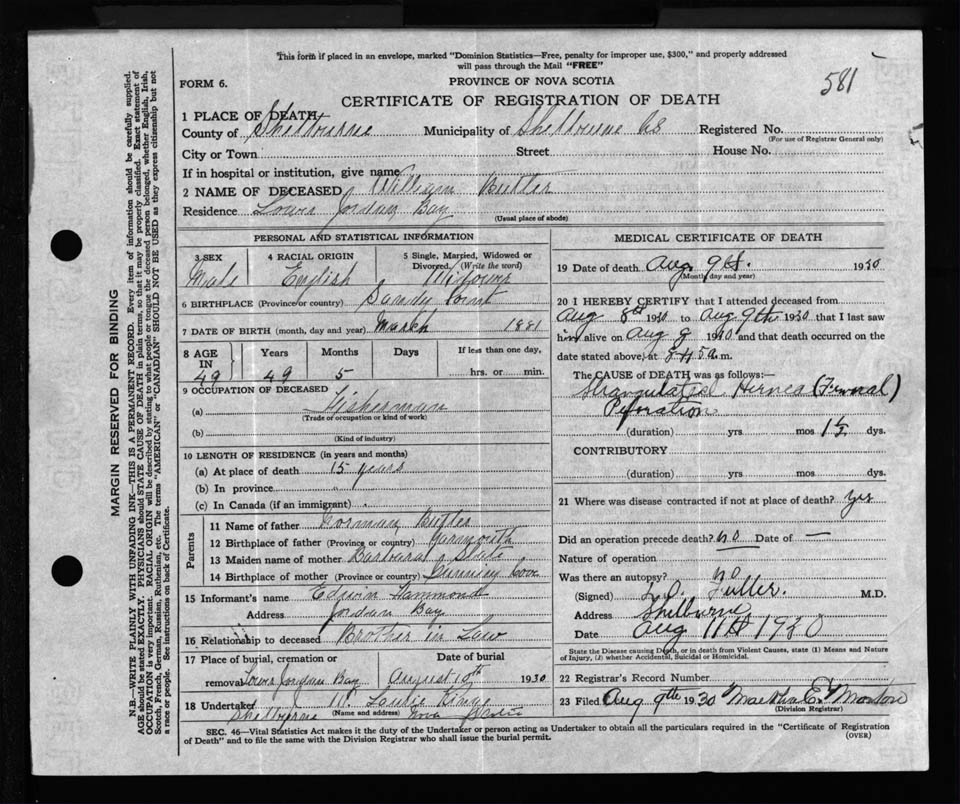 This form if placed in an envelope, marked "Dominion Statistics—Free, penalty for improper use, $300," and properly addressed
will pass through the Mail "FREE"
581
FORM 6.
PROVINCE OF NOVA SCOTIA
CERTIFICATE OF REGISTRATION OF DEATH
1 PLACE OF DEATH
County of Shelburne Municipality of Shelbourne Registered No.
(For use of Registrar General only)
City or Town Street House No.
If in hospital or institution, give name
2 NAME OF DECEASED William Butler
Residence Lower Jordan Bay
(Usual place of abode)
PERSONAL AND STATISTICAL INFORMATION
3 SEX 4 RACIAL ORIGIN 5 Single, Married, Widowed or Divorced (Write the word)
Male English Widower
6 BIRTHPLACE (Province or country) Sandy Point
7 DATE OF BIRTH (month, day and year) March 1881
8 AGE IN Years Months Days If less than one day,
49 49 5 hrs. or min.
9 OCCUPATION OF DECEASED
(a) Fisherman
(Trade or occupation or kind of work)
(b)
(Kind of industry)
10 LENGTH OF RESIDENCE (in years and months)
(a) At place of death 15 years
(b) In province "
(c) In Canada (if an immigrant)
Parents
11 Name of father Norman Butler
12 Birthplace of father (Province or country) Yarmouth
13 Maiden name of mother Barbara
14 Birthplace of mother (Province or country) Cove
15 Informant's name Edwin Hammond
Address Jordan Bay
16 Relationship to deceased Brother in Law
17 Place of burial, cremation or removal Date of burial
Lower Jordan Bay August 10th 1930
18 Undertaker King
(Name and address)
Shelbourne Nova Scotia
MEDICAL CERTIFICATE OF DEATH
19 Date of death Aug 9th. 1930
(Month, day and year)
20 I HEREBY CERTIFY that I attended deceased from
Aug 8th 1930 to Aug 9th 1930 that I last saw
him alive on Aug 9 1930 and that death occurred on the
date stated above, at a.m.
The CAUSE of DEATH was as follows:
Strangulated Hernea (Femoral)
Perforation
(duration) yrs mos 1½ dys.
CONTRIBUTORY
(duration) yrs. mos. dys.
21 Where was disease contracted if not at place of death? yes
Did an operation precede death? no Date of —
Nature of operation
Was there an autopsy? no
(Signed) Fuller. M.D.
Address Shelburne
Date Aug 11th 1930
State the Disease causing Death, or in death from Violent Causes, state (1) Means and Nature
of Injury, (2) whether Accidental, Suicidal or Homicidal.
22 Registrar's Record Number
23 Filed Aug 9th 1930 Martha E. Morton
(Division Registrar)
SEC. 46—Vital Statistics Act makes it the duty of the Undertaker or person acting as Undertaker to obtain all the particulars required in the "Certificate of Registration
of Death" and to file the same with the Division Registrar who shall issue the burial permit.
(OVER)
MARGIN RESERVED FOR BINDING
N.B.—WRITE PLAINLY WITH UNFADING INK—THIS IS A PERMANENT RECORD. Every item of information should be carefully supplied.
AGE should be stated EXACTLY. PHYSICIANS should STATE CAUSE OF DEATH in plain terms, so that it may be properly classified. Exact statement of
OCCUPATION is very important. RACIAL ORIGIN will be described by stating to what people or tongue the deceased person belonged, whether English, Irish,
Scotch, French, German, Russian, Ruthenian, etc. The terms "AMERICAN" or "CANADIAN" SHOULD NOT BE USED as they express citizenship but not
a race or people. See instructions on back of Certificate.